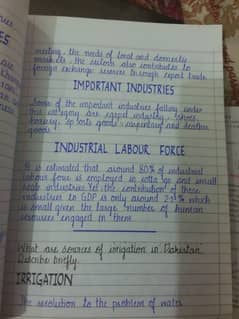 meeting the needs of local and domestic
markets, the sectors also contributes to
foreign exchange reserves through export trade.
IMPORTANT INDUSTRIES
Some of the important industries falling under
this category are carpet industry, knives,
hosiery, sports goods, carpentary and leather
goods.
INDUSTRIAL LABOUR FORCE
It is estimated that around 80% of industrial
labour force is employed in cottage and small
scale industries. Yet the contribution of these
industries to GDP is only around which
is small given the large number of human
resources engaged in them.
What are sources of irrigation in Pakistan
Describe briefly.
IRRIGATION
The resolution to the problem of water